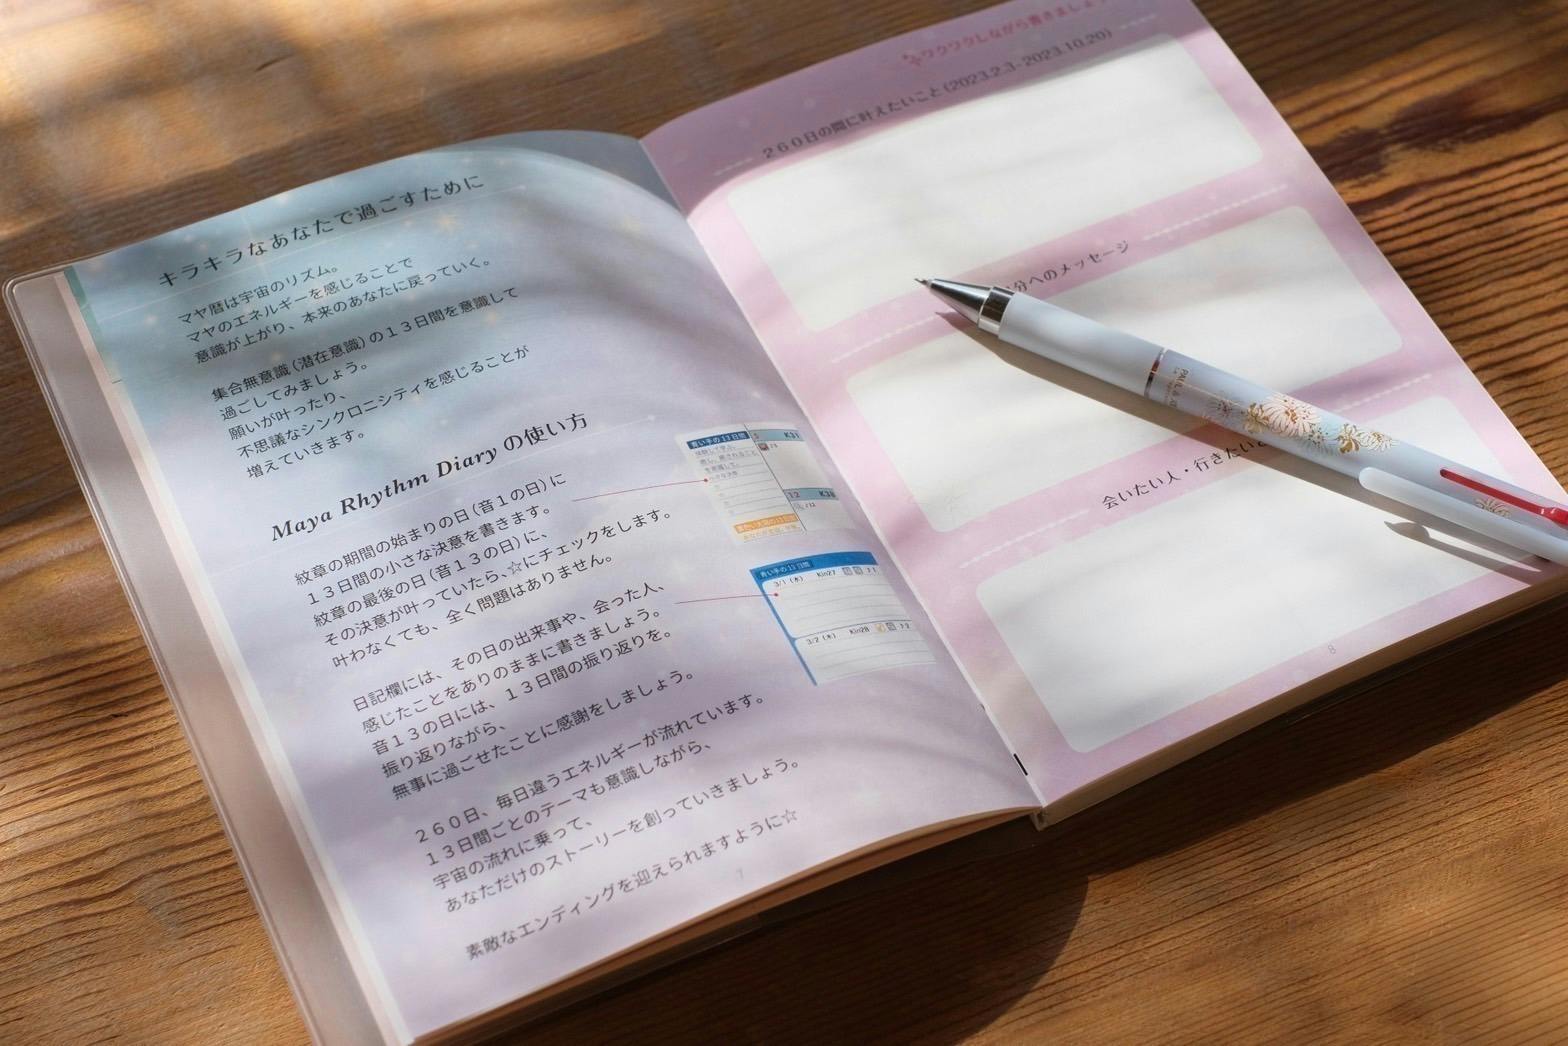 キラキラなあなたで過ごすために
マヤ暦は宇宙のリズム。
マヤのエネルギーを感じることで
意識が上がり、本来のあなたに戻っていく。
集合無意識(潜在意識)の13日間を意識して
過ごしてみましょう。
願いが叶ったり、
不思議なシンクロニシティを感じることが
増えていきます。
Maya Rhythm Diaryの使い方
紋章の期間の始まりの日(音1の日)に
13日間の小さな決意を書きます。
紋章の最後の日(音13の日)に、
その決意が叶っていたら、☆にチェックをします。
叶わなくても、全く問題はありません。
日記欄には、その日の出来事や、会った人、
感じたことをありのままに書きましょう。
音13の日には、13日間の振り返りを。
振り返りながら、
無事に過ごせたことに感謝をしましょう。
260日、毎日違うエネルギーが流れています。
13日間ごとのテーマも意識しながら、
宇宙の流れに乗って、
あなただけのストーリーを創っていきましょう。
素敵なエンディングを迎えられますように☆
7
青い手の13日間
青い手の13日間
3/1(水) Kin27
3/2(木) Kin28
ワクワクしながら書きましょう
260日の間に叶えたいこと(2023.2.3-2023.10.20)
分へのメッセージ
会いたい人・行きたい
8